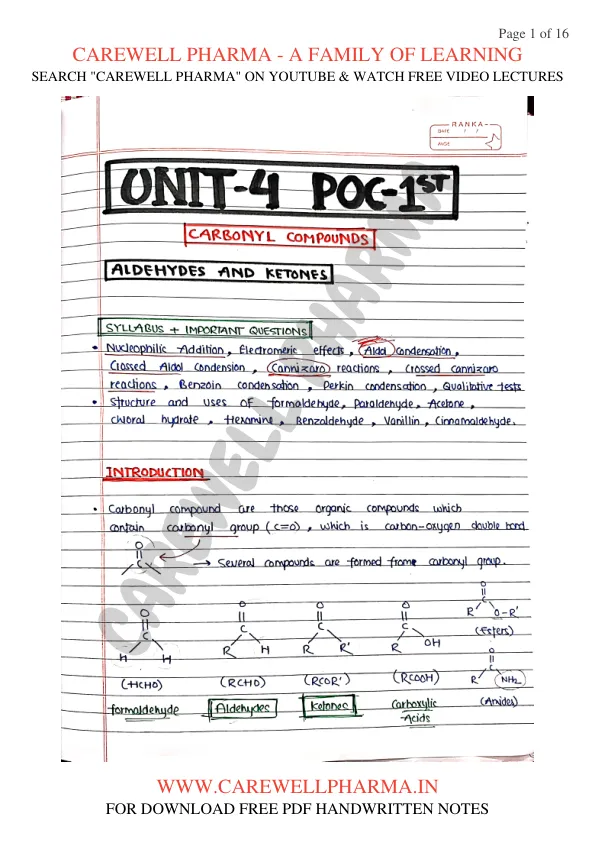 Page 1 of 16
CAREWELL PHARMA - A FAMILY OF LEARNING
SEARCH "CAREWELL PHARMA" ON YOUTUBE & WATCH FREE VIDEO LECTURES
RANKA
DATE / /
PAGE
UNIT-4 POC-1ST
CARBONYL COMPOUNDS
ALDEHYDES AND KETONES
SYLLABUS + IMPORTANT QUESTIONS
• Nucleophilic Addition, Electromeric effects, Aldol condensation,
Crossed Aldol condension, Cannizaro reactions, Crossed cannizaro
reactions, Benzoin condensation, Perkin condensation, Qualitative tests
• Structure and uses of formaldehyde, Paraldehyde, Acetone,
chloral hydrate, Hexamine, Benzaldehyde, Vanillin, Cinnamaldehyde.
INTRODUCTION
• Carbonyl compound are those organic compounds which
contain carbonyl group (C=O), which is carbon-oxygen double bond
O
C
→ Several compounds are formed frome carbonyl group.
O O O O O
C C C C C
H H R H R R' R OH R O-R'
(Esters)
O
C
R NH2
(HCHO) (RCHO) (RCOR') (RCOOH) (Amides)
formaldehyde Aldehydes Ketones Carboxylic
Acids
CAREWELL PHARMA
WWW.CAREWELLPHARMA.IN
FOR DOWNLOAD FREE PDF HANDWRITTEN NOTES